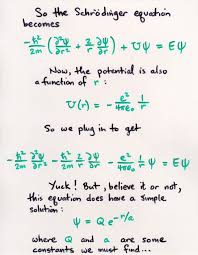 So the Schrödinger equation
becomes
-ħ²/2m (∂²ψ/∂r² + 2/r ∂ψ/∂r) + Uψ = Eψ
Now, the potential is also
a function of r:
U(r) = - e²/4πε₀ 1/r
So we plug in to get
-ħ²/2m ∂²ψ/∂r² - ħ²/2m 2/r ∂ψ/∂r - e²/4πε₀ 1/r ψ = Eψ
Yuck! But, believe it or not,
this equation does have a simple
solution:
ψ = Q e^(-r/a)
where Q and a are some
constants we must find...